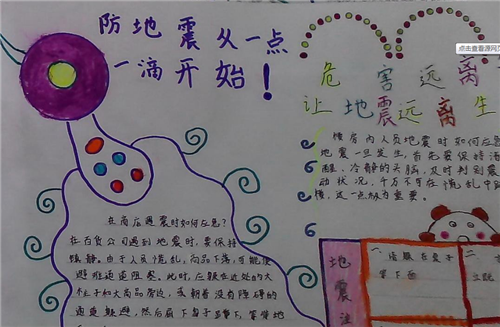 防地震从一点
一滴开始！
点击查看源网页
危害远离
让地震远离生
楼房内人员地震时如何应急?
地震一旦发生，首先要保持清
醒、冷静的头脑，及时判别震
动状况，千万不可在慌乱中
楼，这一点极为重要。
在商店遇震时如何应急?
在百货公司遇到地震时，要保持
镇静。由于人员慌乱，商品下落，可能使
避难通道阻塞。此时，应躲在近处的大
柱子和大商品旁边，或朝着没有障碍的
通道躲避，然后屈下身子蹲下，等待地
地震注
一、
桌子
下面
二、